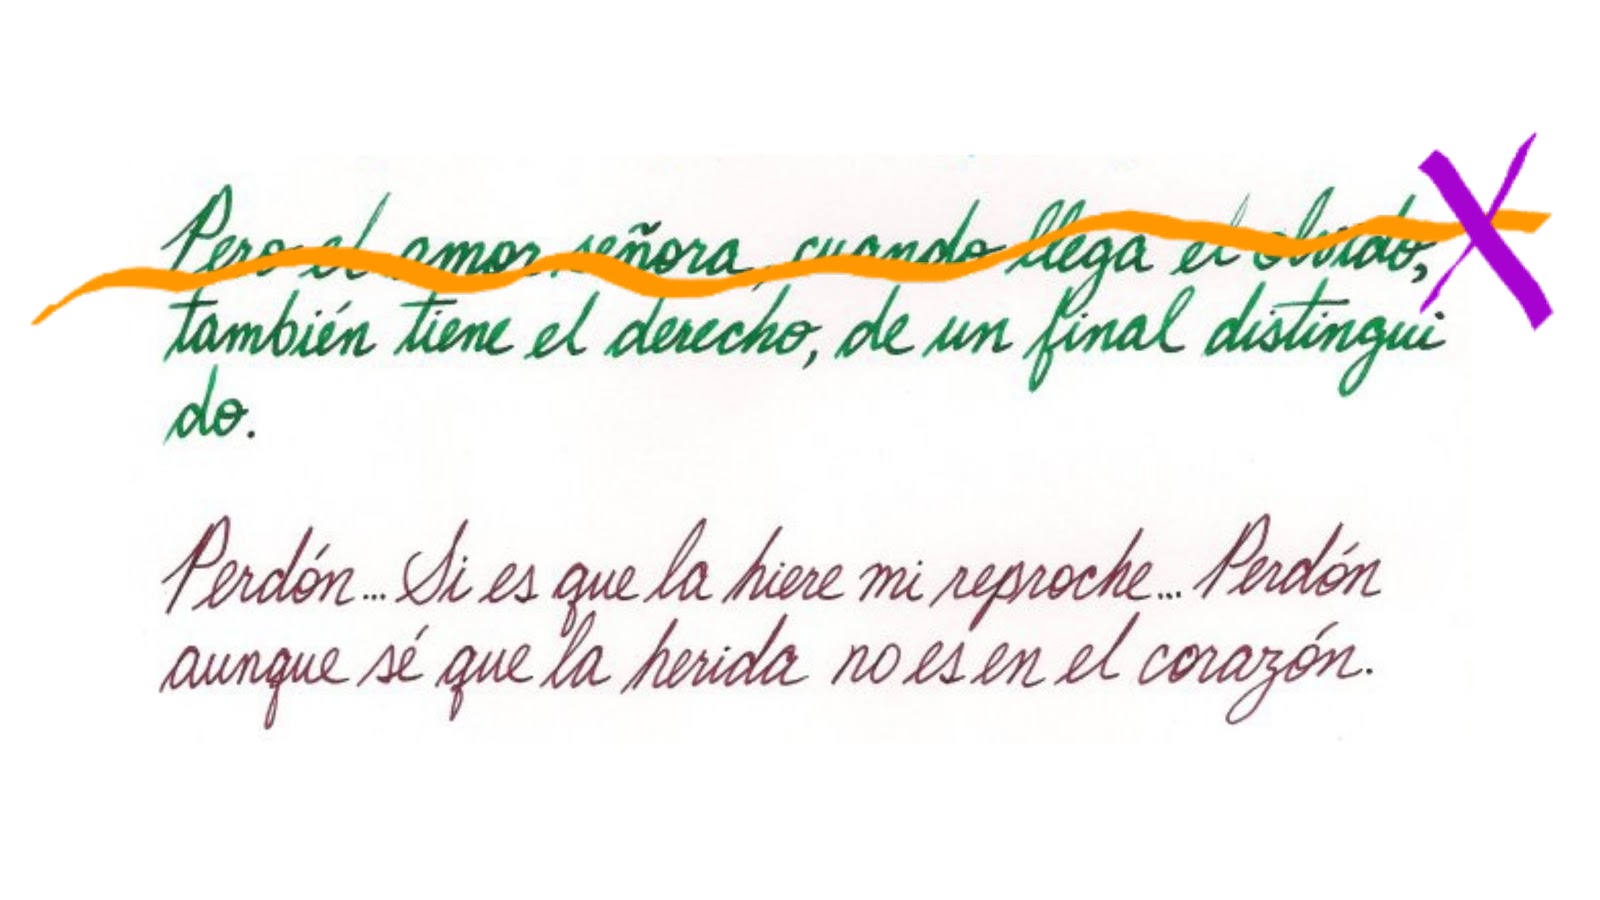 Pero el amor señora, cuando llega el olvido,
también tiene el derecho, de un final distingui
do.
Perdón... Si es que la hiere mi reproche... Perdón
aunque sé que la herida no es en el corazón.